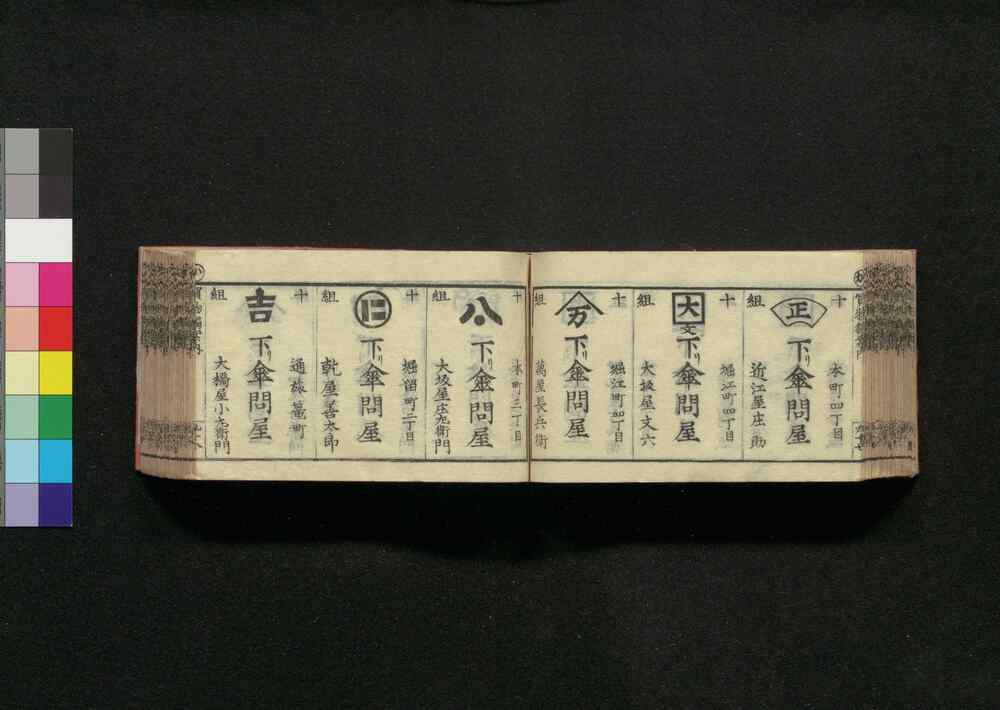 十組
正
本町四丁目
下り傘問屋
近江屋庄助
十組
大
文
堀江町四丁目
下り傘問屋
大坂屋文六
十組
万
堀江町四丁目
下り傘問屋
萬屋長兵衛
十組
八
本町三丁目
下り傘問屋
大坂屋庄左衛門
十組
堀留町二丁目
下り傘問屋
乾屋善太郎
十組
吉
通旅籠町
下り傘問屋
大橋屋小左衛門